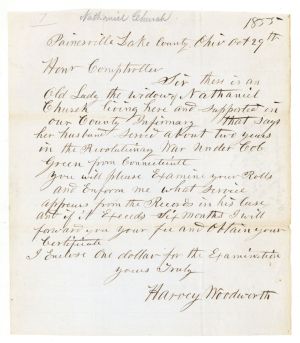 Nathaniel Church
1855
Painesville Lake County, Ohio Oct 29th
Honr Comptroller
Sir there is an
Old Lady the widow Nathaniel
Church living here and Supported in
our County Infirmary that says
her husband Served about two years
in the Revolutionary War Under Cob
Green from Connecticutt
You will please Examine your Rolls
and Enform me what Service
appears from the Records in his Case
and if it Exceeds Six Months I will
forward you your fee and Obtain your
Certificate
I Enclose One dollar for the Examination
yours Truly
Harvey Woodworth